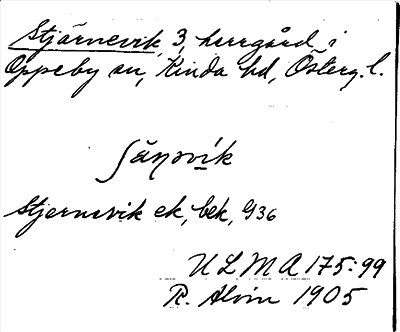 Stjärnevik, 3, herrgård i
Oppeby sn, Kinda hd, Österg. l.
Stjernevik ek, bek, G36
ULMA 175:99
R. Alvin 1905